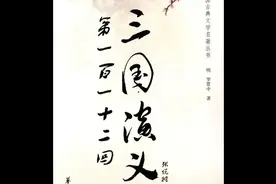 三国演义
第一百一十二回
古典文学名著丛书
明 罗贯中 著
第